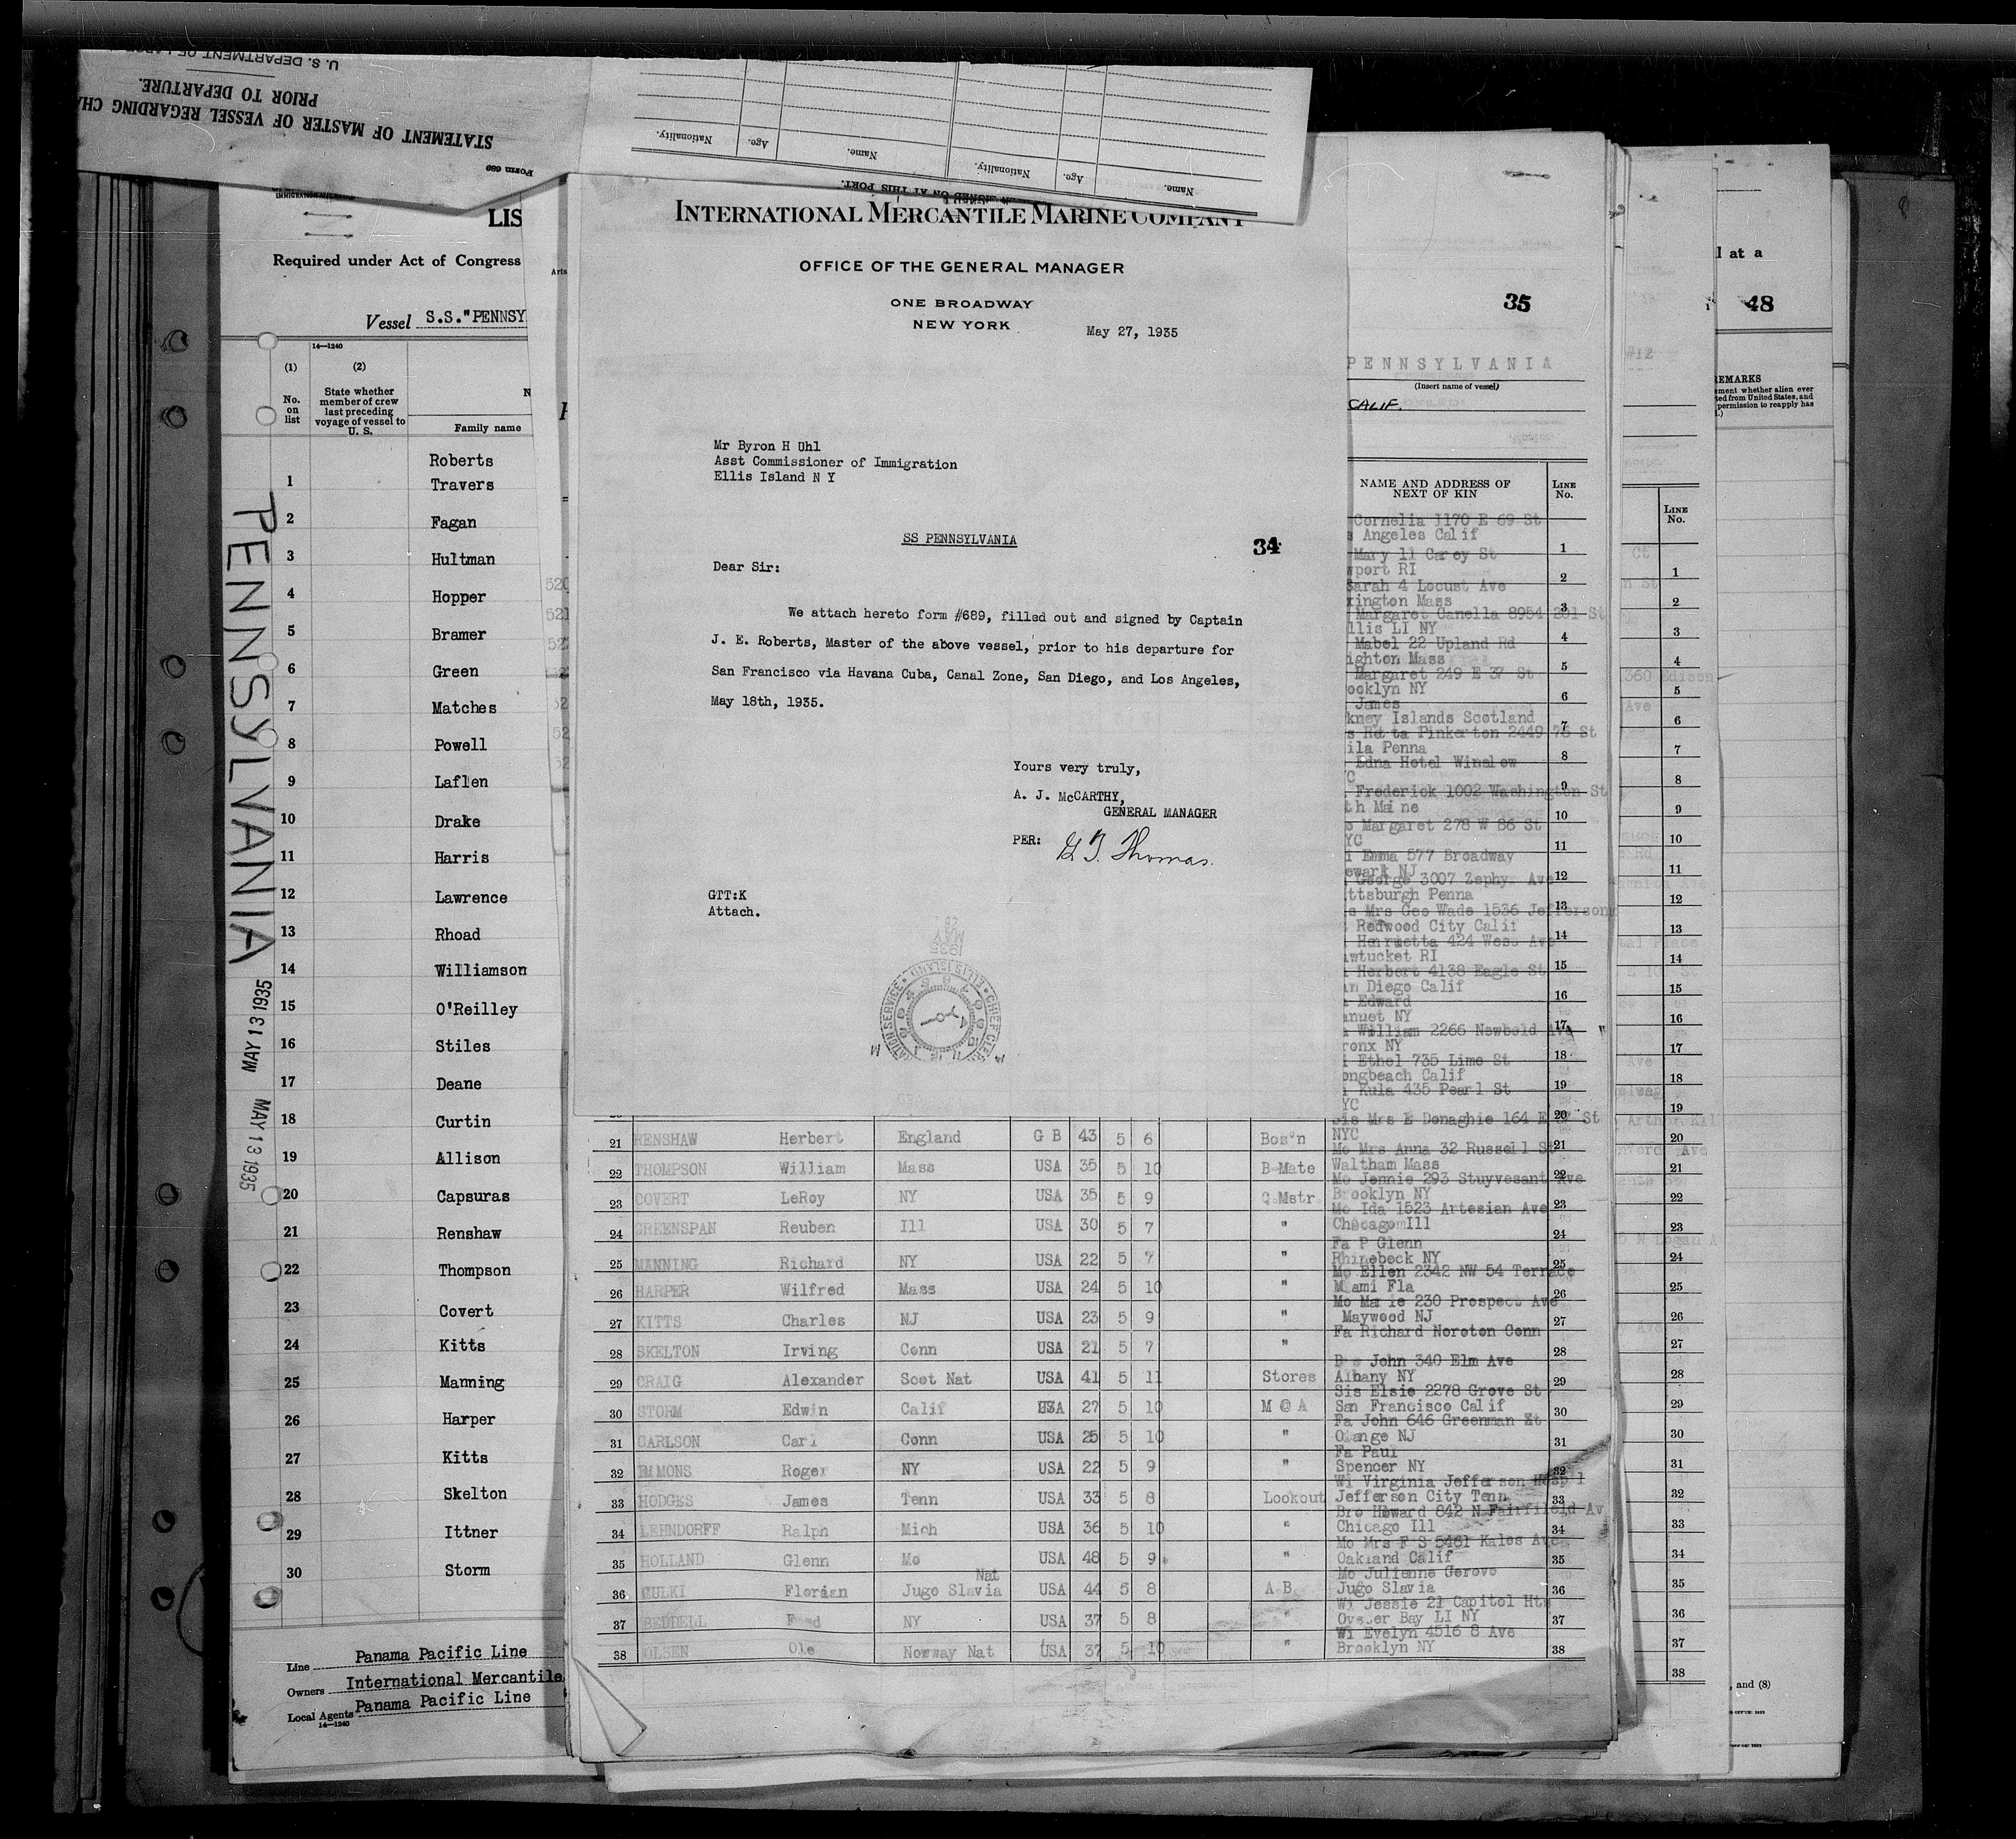 U. S. DEPARTMENT OF LABOR
STATEMENT OF MASTER OF VESSEL REGARDING
PRIOR TO DEPARTURE.
Form 689
Name.
Age.
Nationality.
Name.
Age.
Nationality.
SIGNED ON AT THIS PORT.
LIS
Required under Act of Congress
Vessel S.S."PENNSY
14—1240
(1)
No. on list
(2)
State whether member of crew last preceding voyage of vessel to U. S.
Family name
Roberts
1 Travers
2 Fagan
3 Hultman
4 Hopper
5 Bramer
6 Green
7 Matches
8 Powell
9 Laflen
10 Drake
11 Harris
12 Lawrence
13 Rhoad
14 Williamson
15 O'Reilley
16 Stiles
17 Deane
18 Curtin
19 Allison
20 Capsuras
21 Renshaw
22 Thompson
23 Covert
24 Kitts
25 Manning
26 Harper
27 Kitts
28 Skelton
29 Ittner
30 Storm
PENNSYLVANIA
MAY 13 1935
MAY 13 1935
Line Panama Pacific Line
Owners International Mercantile
Local Agents Panama Pacific Line
14—1240
INTERNATIONAL MERCANTILE MARINE COMPANY
OFFICE OF THE GENERAL MANAGER
ONE BROADWAY
NEW YORK
May 27, 1935
Mr Byron H Uhl
Asst Commissioner of Immigration
Ellis Island N Y
SS PENNSYLVANIA
34
Dear Sir:
We attach hereto form #689, filled out and signed by Captain
J. E. Roberts, Master of the above vessel, prior to his departure for
San Francisco via Havana Cuba, Canal Zone, San Diego, and Los Angeles,
May 18th, 1935.
Yours very truly,
A. J. McCARTHY,
GENERAL MANAGER
PER: G T Thomas.
GTT:K
Attach.
35
PENNSYLVANIA
(Insert name of vessel)
CALIF.
NAME AND ADDRESS OF NEXT OF KIN
LINE No.
Cornelia 1170 E 69 St
Angeles Calif
1
Mary 11 Carey St
port RI
2
Sarah 4 Locust Ave
ington Mass
3
Margaret Canella 8954 201 St
llis LI NY
4
Mabel 22 Upland Rd
ighton Mass
5
Margaret 249 E 37 St
ooklyn NY
6
James
kney Islands Scotland
7
Pinkerton 2449 76 St
ila Penna
8
Edna Hotel Winslow
9
Frederick 1002 Washington St
th Maine
10
Margaret 278 W 86 St
YC
11
Emma 577 Broadway
ewark NJ
12
George 3007 Zephyr Ave
ttsburgh Penna
13
Mrs Geo Wade 1536 Jefferson
Redwood City Calif
14
Henrietta 424 West Ave
wtucket RI
15
Herbert 4138 Eagle St
n Diego Calif
16
Edward
anuet NY
17
William 2266 Newbold Ave
ronx NY
18
Ethel 735 Lime St
ongbeach Calif
19
Kula 435 Pearl St
YC
20
21 RENSHAW Herbert England G B 43 5 6 Bos'n Sis Mrs E Donaghie 164 E 87 St NYC 21
22 THOMPSON William Mass USA 35 5 10 B Mate Mo Mrs Anna 32 Russell St Waltham Mass 22
23 COVERT LeRoy NY USA 35 5 9 Q Mstr Mo Jennie 293 Stuyvesant Ave Brooklyn NY 23
24 GREENSPAN Reuben Ill USA 30 5 7 " Mo Ida 1523 Artesian Ave Chicago Ill 24
25 MANNING Richard NY USA 22 5 7 " Fa P Glenn Rhinebeck NY 25
26 HARPER Wilfred Mass USA 24 5 10 " Mo Ellen 2342 NW 54 Terrace Miami Fla 26
27 KITTS Charles NJ USA 23 5 9 " Mo Marie 230 Prospect Ave Maywood NJ 27
28 SKELTON Irving Conn USA 21 5 7 " Fa Richard Noroton Conn 28
29 CRAIG Alexander Scot Nat USA 41 5 11 Stores Bro John 340 Elm Ave Albany NY 29
30 STORM Edwin Calif USA 27 5 10 M @ A Sis Elsie 2278 Grove St San Francisco Calif 30
31 CARLSON Carl Conn USA 25 5 10 " Fa John 646 Greenman St Orange NJ 31
32 EMMONS Roger NY USA 22 5 9 " Fa Paul Spencer NY 32
33 HODGES James Tenn USA 33 5 8 Lookout Wi Virginia Jefferson Hosp'l Jefferson City Tenn 33
34 LEHNDORFF Ralph Mich USA 36 5 10 " Bro Howard 842 N Fairfield Av Chicago Ill 34
35 HOLLAND Glenn Mo USA 48 5 9 " Mo Mrs F S 5461 Kales Ave Oakland Calif 35
36 GULKI Florian Jugo Slavia Nat USA 44 5 8 A B Mo Julienne Gerovo Jugo Slavia 36
37 BEDDELL NY USA 37 5 8 " Wi Jessie 21 Capitol Hts Oyster Bay LI NY 37
38 OLSEN Ole Norway Nat USA 37 5 10 " Wi Evelyn 4516 8 Ave Brooklyn NY 38
#12
LINE No.
1
2
3
4
360 Edison
5
Ave
6
7
8
9
10
11
12
13
14
15
16
17
18
19
20
21
22
23
24
25
26
27
28
29
30
31
32
33
34
35
36
37
38
l at a
48
REMARKS
, and (8)